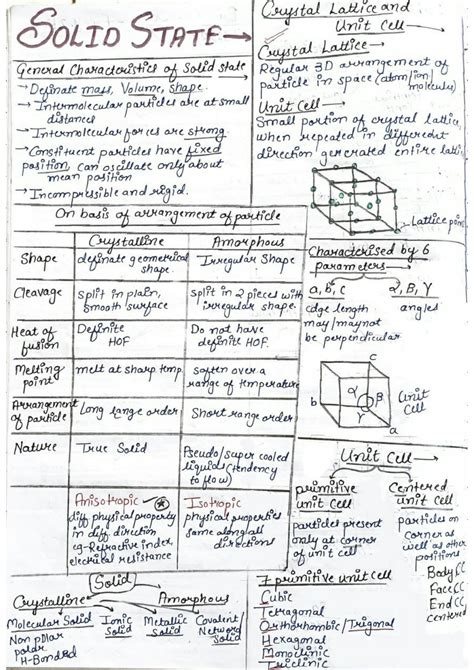 SOLID STATE →
General Characteristics of Solid state
→ Definate mass, Volume, shape
→ Intermolecular particles are at small
distances
→ Intermolecular forces are strong
→ Constituent particles have fixed
position, can oscillate only about
mean position
→ Incompressible and rigid.
Crystal Lattice and
Unit Cell →
Crystal Lattice →
Regular 3D arrangement of
particle in space (atom/ion/
molecules)
Unit Cell →
Small portion of crystal lattice,
when repeated in different
direction generated entire lattice
Lattice point
On basis of arrangement of particle
Crystalline Amorphous
Shape definate geometrical shape. Irregular Shape
Cleavage split in plain, smooth surface split in 2 pieces with irregular shape.
Heat of fusion Definite HOF Do not have definite HOF.
Melting point melt at sharp temp soften over a range of tmperature
Arrangement of particle Long range order Short range order
Nature True Solid Pseudo/super cooled liquid (tendency to flow)
Anisotropic
diff physical property
in diff direction
eg-Refractive index,
electrical resistance
Isotropic
physical properties
same along all
directions
Characterised by 6
parameters →
a, b, c α, β, γ
edge length angles
may/maynot
be perpendicular
c
b
a
α
β
γ
Unit
Cell
Unit Cell →
primitive
unit cell
particles present
only at corner
of unit cell
Centered
unit cell
particles on
corner as
well as other
positions
Body CC
Face CC
End CC
centered
Solid
Crystalline Amorphous
Molecular Solid
Non polar
polar
H-Bonded
Ionic
Solid
Metallic
Solid
Covalent
Network
Solid
7 primitive unit cell
Cubic
Tetragonal
Orthorhombic/Trigonal
Hexagonal
Monoclinic
Triclinic